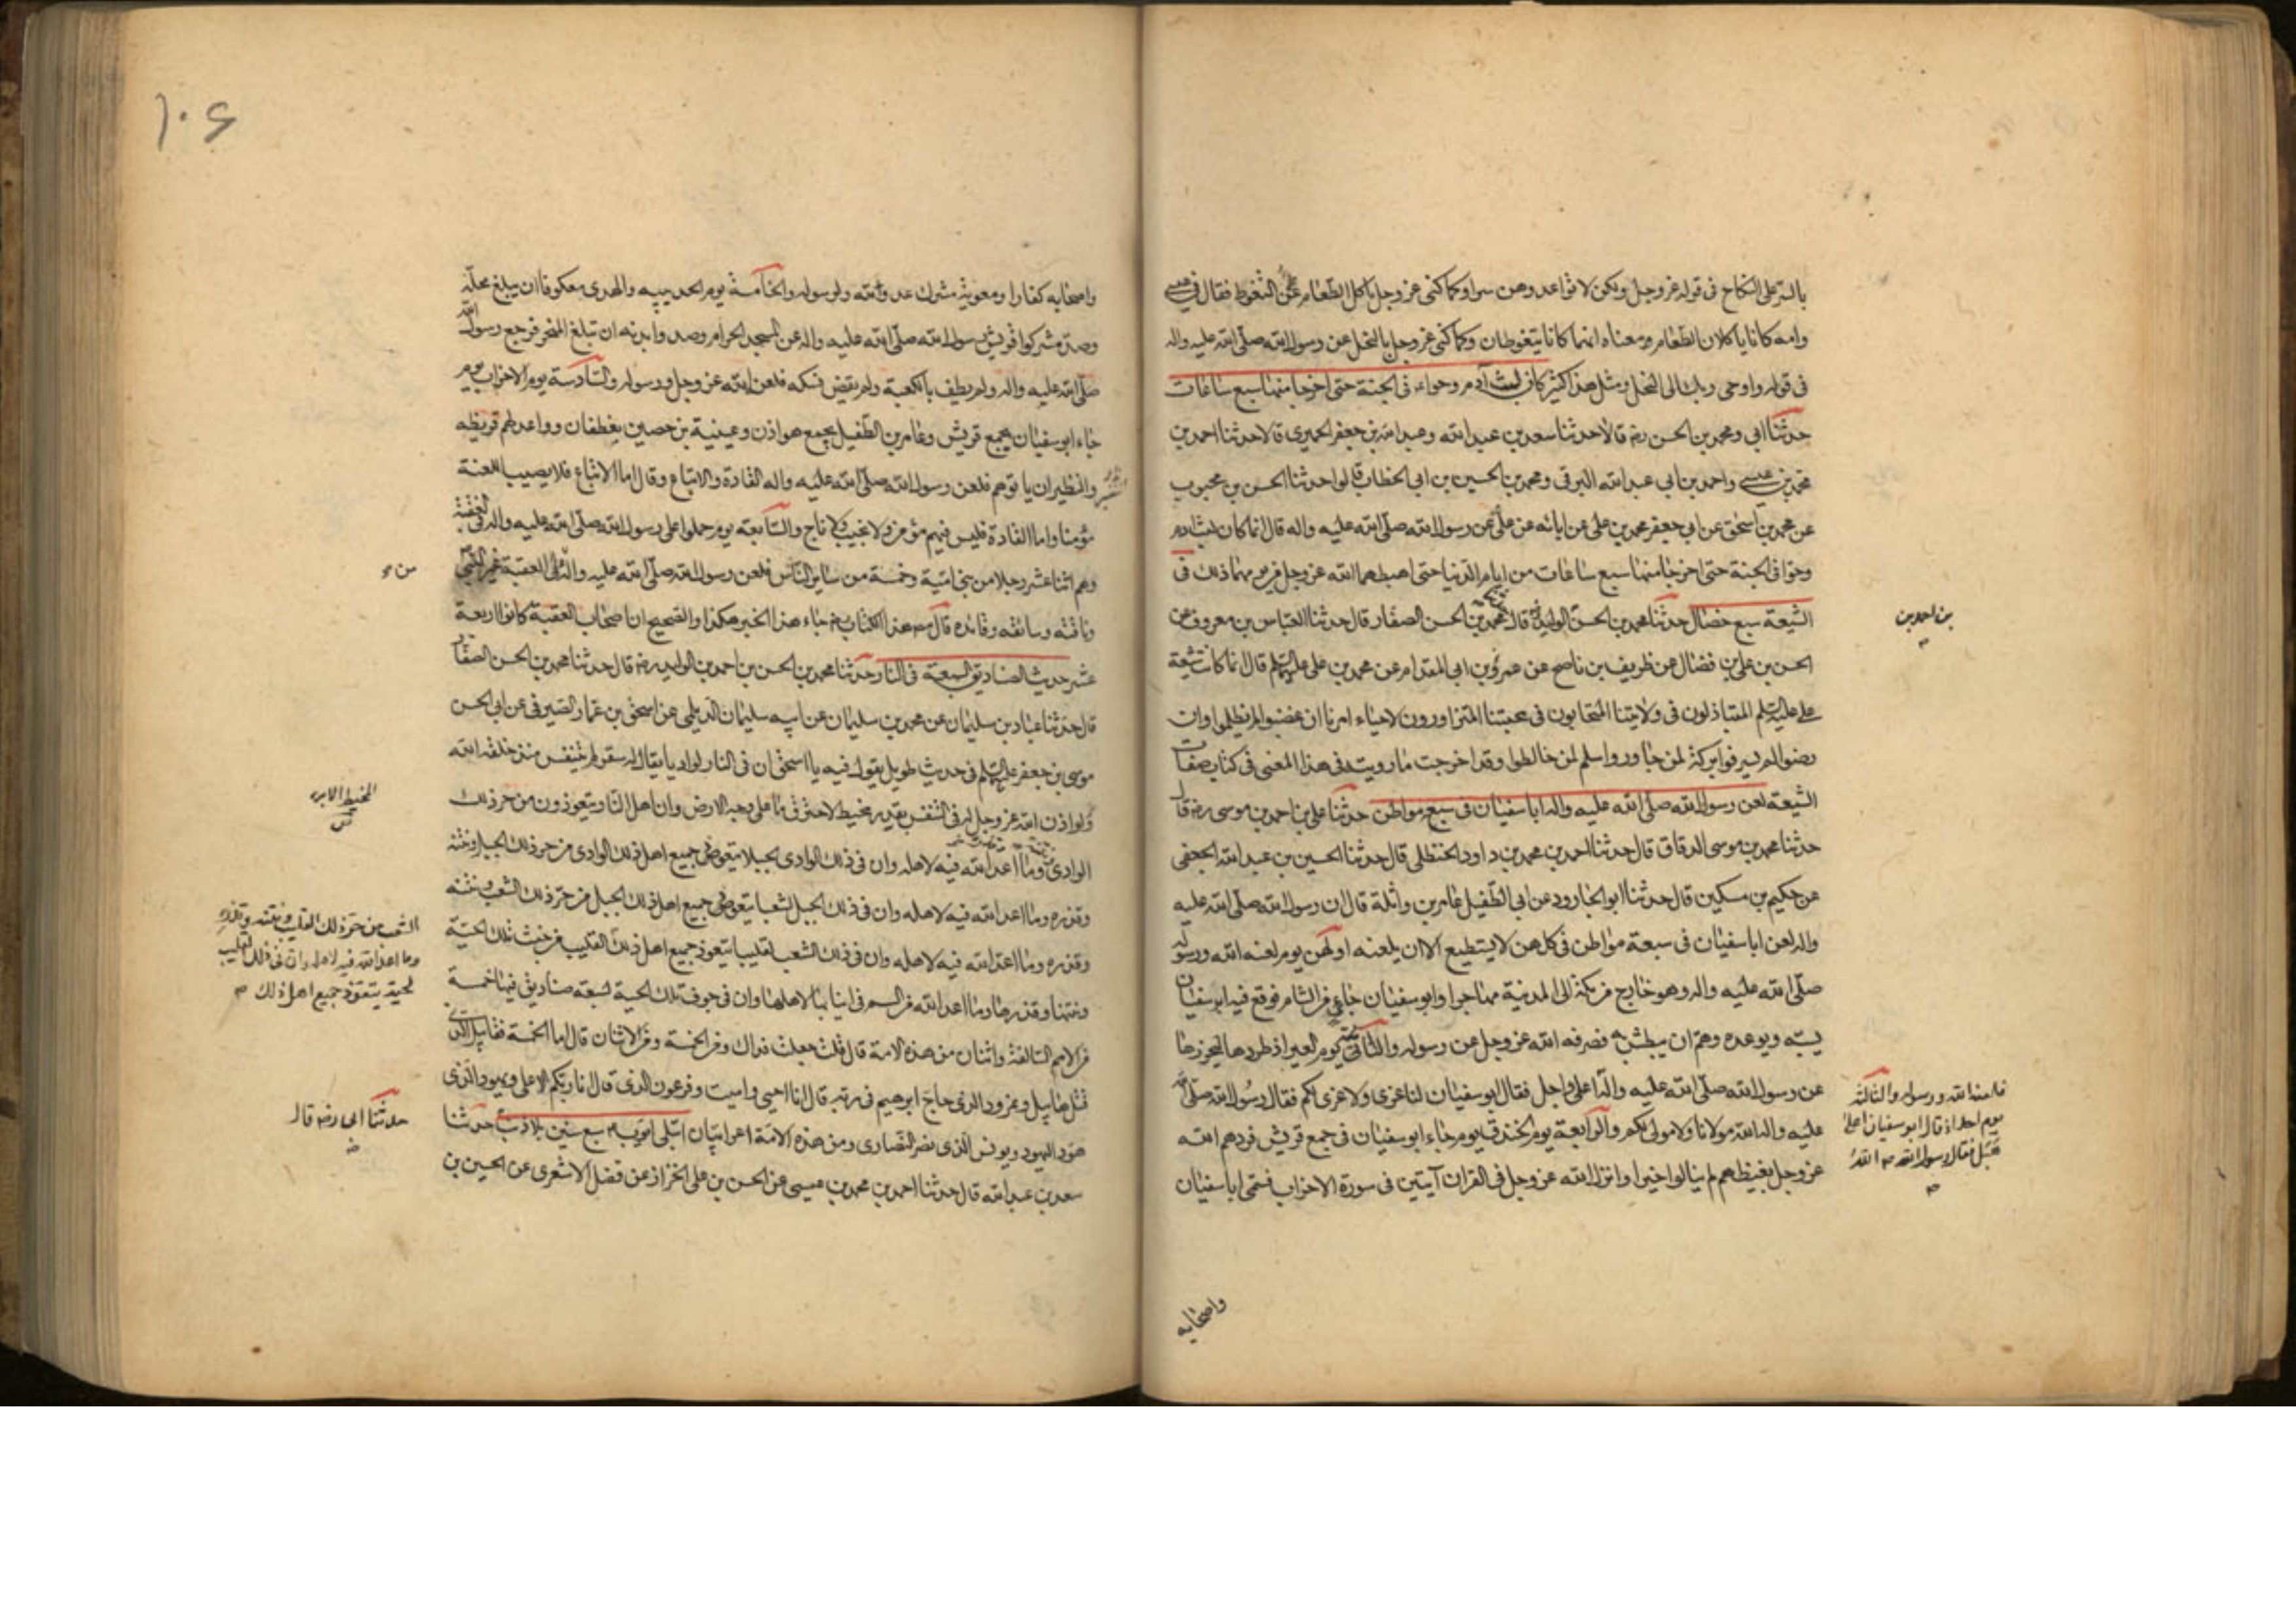 بالسر على النكاح فى قوله عز وجل ولكن لا تواعدوهن سرا وكما كنى عز وجل باكل الطعام عن التغوط فقال فى عيسى
وامه كانا ياكلان الطعام ومعناه انهما كانا يتغوطان وكما كنى عز وجل بالنحل عن رسول الله صلى الله عليه واله
فى قوله واوحى ربك الى النحل ومثل هذا كثير كان لبث آدم وحواء فى الجنة حتى اخرجا منها سبع ساعات
حدثنا ابى ومحمد بن الحسن رضه قالا حدثنا سعد بن عبد الله وعبد الله بن جعفر الحميرى قالا حدثنا احمد بن
محمد بن عيسى واحمد بن ابى عبد الله البرقى ومحمد بن الحسين بن ابى الخطاب قالوا حدثنا الحسن بن محبوب
عن محمد بن اسحق عن ابى جعفر محمد بن على عن ابائه عن على عن رسول الله صلى الله عليه واله قال انما كان لبث ادم
وحوا فى الجنة حتى اخرجا منها سبع ساعات من ايام الدنيا حتى اهبطهما الله عز وجل من يومهما ذلك فى
الشيعة سبع خصال حدثنا محمد بن الحسن الوليد قال محمد بن الحسن الصفار قال حدثنا العباس بن معروف عن
بن احمد بن
الحسن بن على بن فضال عن ظريف بن ناصح عن عمرو بن ابى المقدام عن محمد بن على عليه السلم قال انما كانت شيعة
على عليه السلم المتباذلون فى ولايتنا المتحابون فى محبتنا المتزاورون لاحياء امرنا ان غضبوا لم يظلموا وان
رضوا لم يسرفوا بركة لمن جاوروا سلم لمن خالطوا وقد اخرجت ما رويته فى هذا المعنى فى كتاب صفات
الشيعة لعن رسول الله صلى الله عليه واله ابا سفيان فى سبع مواطن حدثنا على بن احمد بن موسى رضه قال
حدثنا محمد بن موسى الدقاق قال حدثنا احمد بن محمد بن داود الحنظلى قال حدثنا الحسين بن عبد الله الجعفى
عن حكيم بن مسكين قال حدثنا ابو الجارود عن ابى الطفيل عامر بن واثلة قال ان رسول الله صلى الله عليه
واله لعن ابا سفيان فى سبعة مواطن فى كلهن لا يستطيع الا ان يلعنه اولهن يوم لعنه الله ورسوله
صلى الله عليه واله وهو خارج من مكة الى المدينة مهاجرا وابو سفيان جاءى من الشام فوقع فيه ابو سفيان
يسبه ويوعده وهم ان يبطش به فصرفه الله عز وجل عن رسوله والثانى يوم العير اذ طردها ليحرزها
عن رسول الله صلى الله عليه واله اعلى واجل فقال ابو سفيان لنا عزى ولا عزى لكم فقال رسول الله صلى الله
فلعنه الله ورسوله والثالثة
يوم احد اذ قال ابو سفيان اعل
هبل فقال رسول الله ص الله
عليه واله الله مولانا ولا مولى لكم والرابعة يوم الخندق يوم جاء ابو سفيان فى جمع قريش فردهم الله
عز وجل بغيظهم لم ينالوا خيرا وانزل الله عز وجل فى القران آيتين فى سورة الاحزاب فسمى ابا سفيان
واصحابه
۱۰۶
واصحابه كفارا ومعوية مشرك عدو لله ولرسوله والخامسة يوم الحديبيه والهدى معكوفا ان يبلغ محله
وصد مشركوا قريش رسول الله صلى الله عليه واله عن المسجد الحرام وصدوا بدنه ان تبلغ المنحر فرجع رسول الله
صلى الله عليه واله ولم يطف بالكعبة ولم يقض نسكه فلعن الله عز وجل ورسوله والسادسة يوم الاحزاب يوم
جاء ابو سفيان بجمع قريش وعامر بن الطفيل بجمع هوازن وعيينة بن حصين بغطفان وواعد لهم قريظه
والنظير ان ياتوهم فلعن رسول الله صلى الله عليه واله القادة والاتباع وقال اما الاتباع فلا يصيب اللعنة
مؤمنا واما القادة فليس فيهم مؤمن ولا نجيب ولا ناج والسابعة يوم حملوا على رسول الله صلى الله عليه واله فى العقبة
وهم اثنا عشر رجلا من بنى امية وخمسة من ساير الناس فلعن رسول الله صلى الله عليه واله من على العقبة غير النبى
وناقته وسائقه وقائده قال مصه هذا الكتاب رضه جاء هذا الخبر هكذا والصحيح ان اصحاب العقبة كانوا اربعة
عشر حديث الصناديق السبعة فى النار حدثنا محمد بن الحسن بن احمد بن الوليد رضه قال حدثنا محمد بن الحسن الصفار
قال حدثنا عباد بن سليمان عن محمد بن سليمان عن ابيه سليمان الديلمى عن اسحق بن عمار الصيرفى عن ابى الحسن
موسى بن جعفر عليهما السلم فى حديث طويل يقول فيه يا اسحق ان فى النار لواديا يقال له سقر لم يتنفس منذ خلقه الله
ولو اذن الله عز وجل له فى التنفس بقدر مخيط لاحترق ما على وجه الارض وان اهل النار ليتعوذون من حر ذلك
المخيط الابره
الوادى وما اعد الله فيه لاهله وان فى ذلك الوادى لجبلا يتعوذ جميع اهل ذلك الوادى من حر ذلك الجبل ونتنه
وقذره وما اعد الله فيه لاهله وان فى ذلك الجبل لشعبا يتعوذ جميع اهل ذلك الجبل من حر ذلك الشعب ونتنه
وقذره وما اعد الله فيه لاهله وان فى ذلك الشعب لقليبا يتعوذ جميع اهل ذلك القليب من خبث تلك الحية
الشعب من حر ذلك القليب ونتنه وقذره
وما اعد الله فيه لاهله وان فى ذلك القليب
لحية يتعوذ جميع اهل ذلك
ونتنها وقذرها وما اعد الله من السم فى انيابها لاهلها وان فى جوف تلك الحية لسبعة صناديق فيها خمسة
من الامم السالفة واثنان من هذه الامة قال قلت جعلت فداك ومن الخمسة ومن الاثنان قال اما الخمسة فقابيل الذى
قتل هابيل ونمرود الذى حاج ابرهيم فى ربه قال انا احيى واميت وفرعون الذى قال انا ربكم الاعلى ويهود الذى
هود اليهود ويونس الذى نصر النصارى ومن هذه الامة اعرابيان ابتلى ايوب ع سبع سنين بلا ذنب حدثنا
حدثنا ابى رضه قال
سعد بن عبد الله قال حدثنا احمد بن محمد بن عيسى عن الحسن بن على الخزاز عن فضل الاشعرى عن الحسين بن